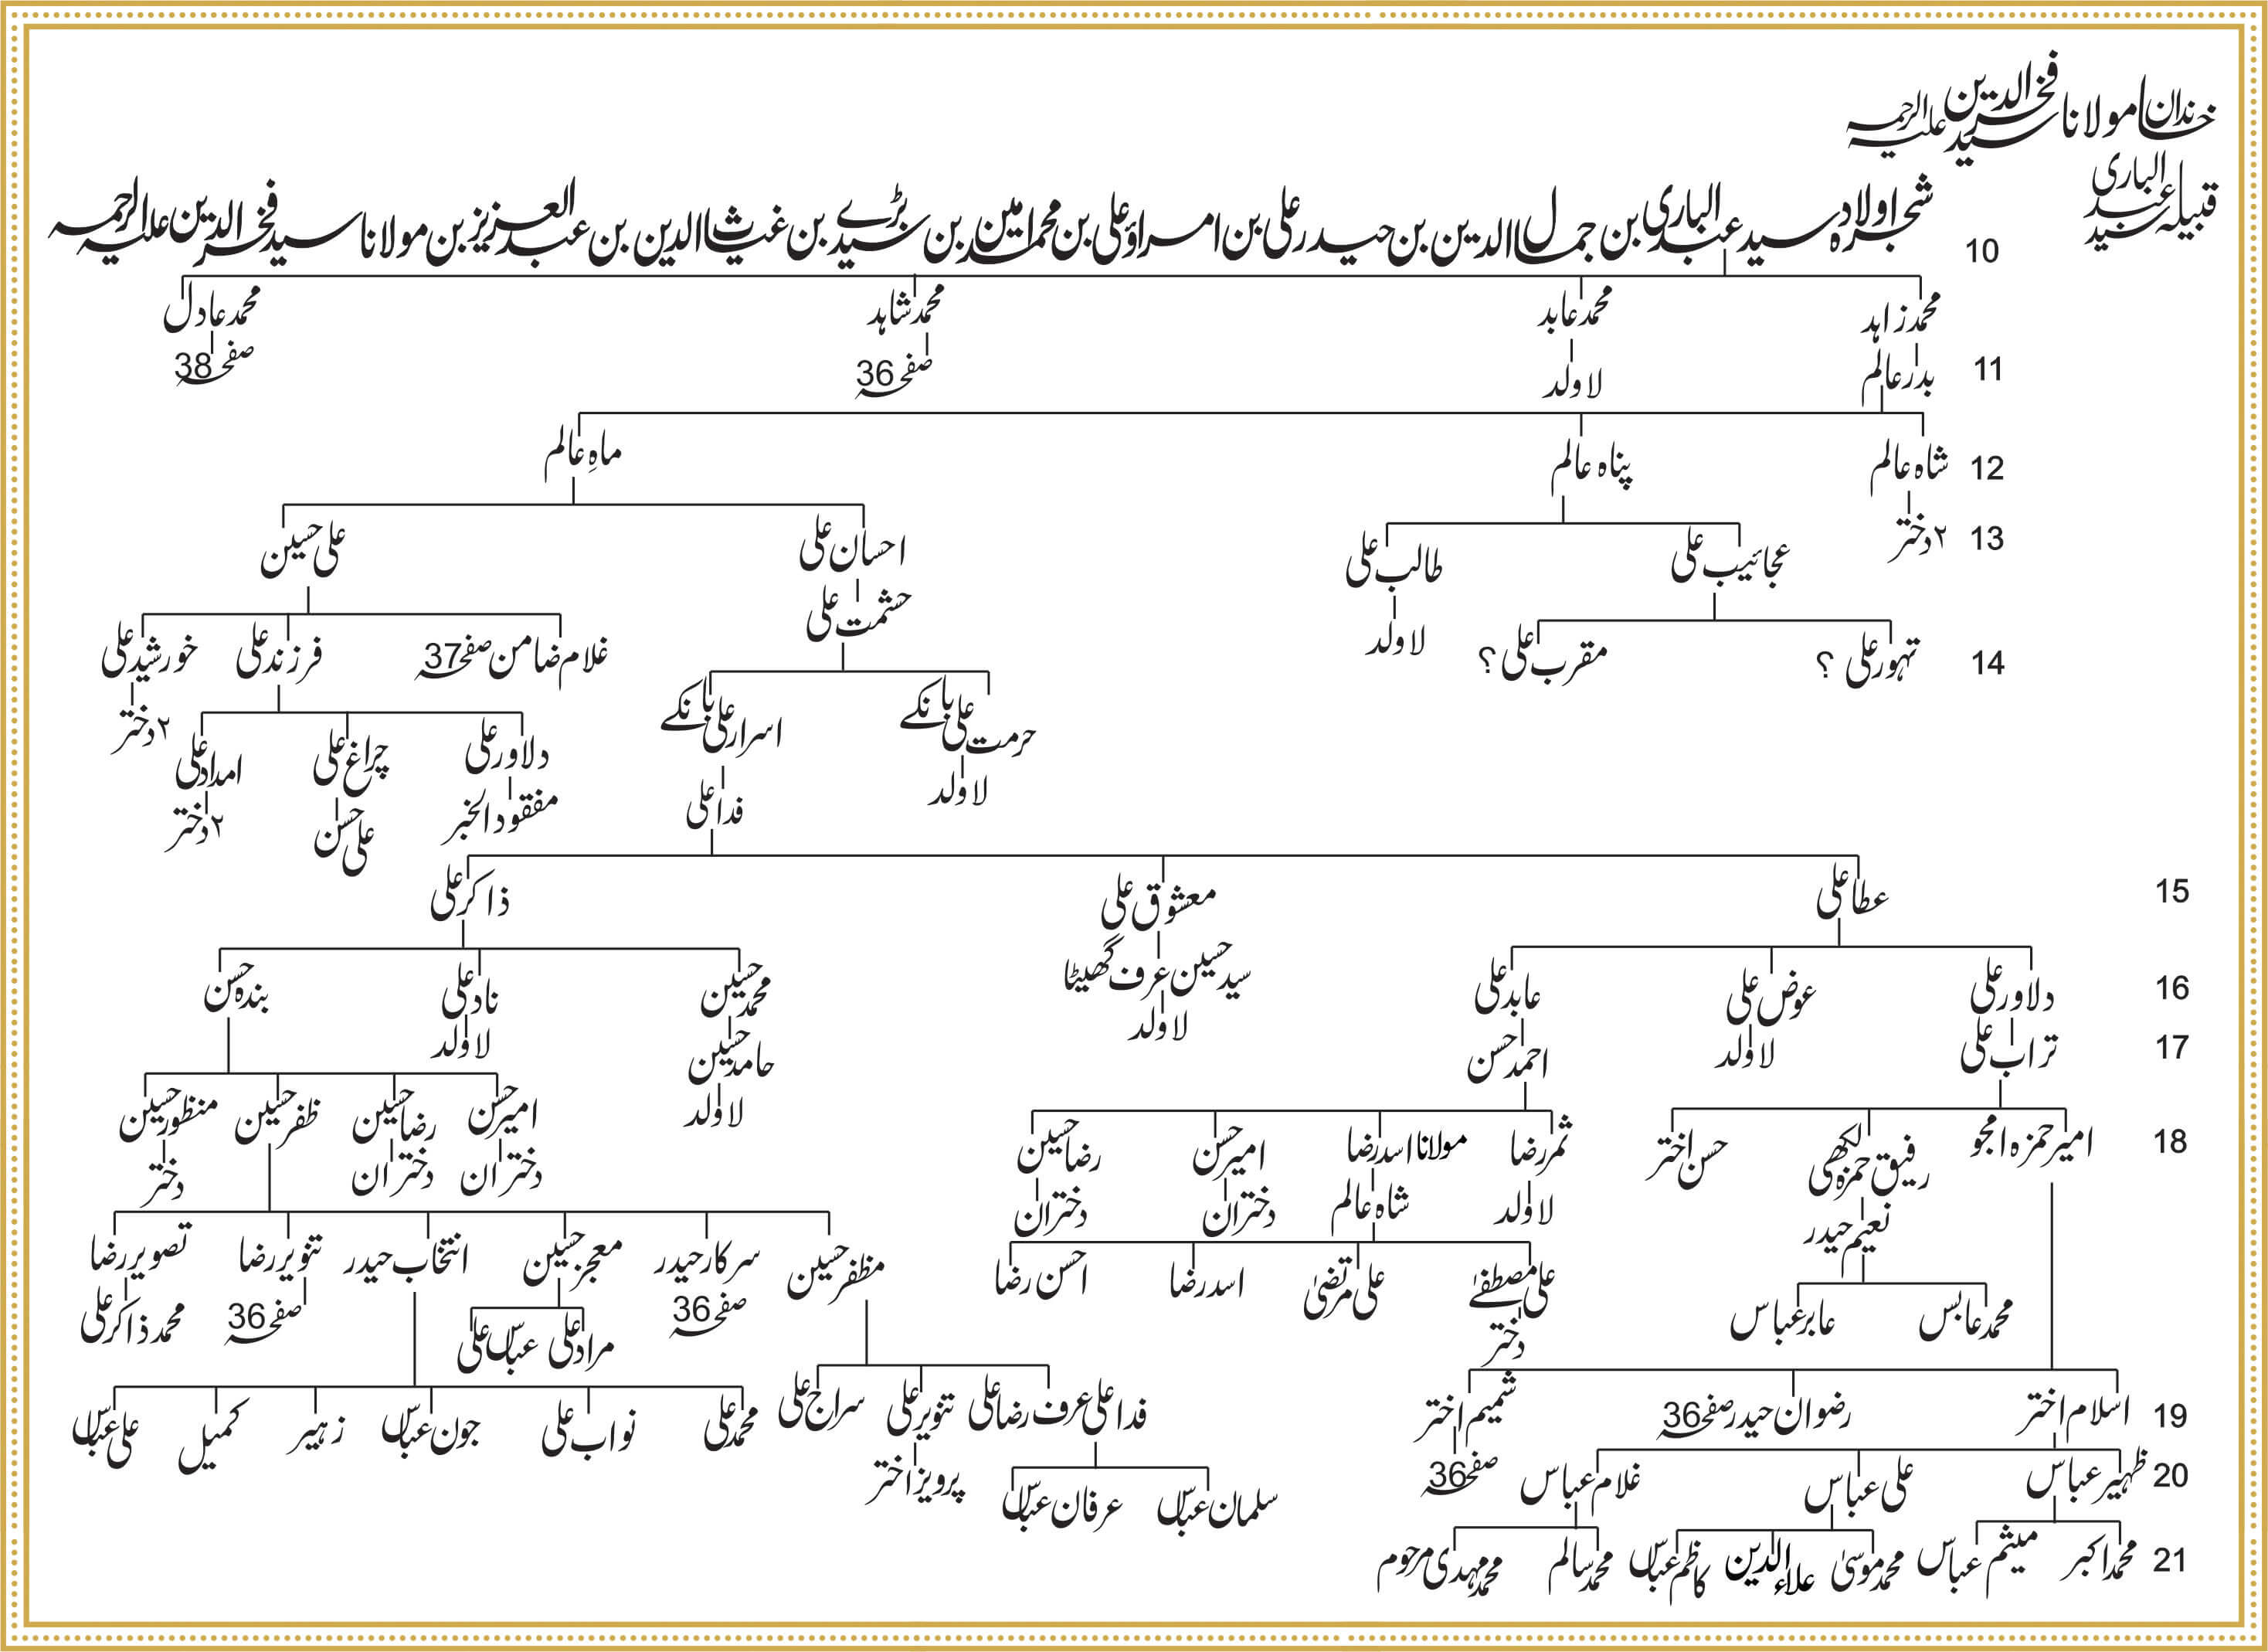 خاندان مولانا سید فخرالدین علیہ الرحمہ
قبیلہ سید عبدالباری
شجرہ اولاد سید عبدالباری بن جمال الدین بن حیدر علی بن امراؤ علی بن محمد امین بن سید بڑے بن غیاث الدین بن عبدالعزیز بن مولانا سید فخرالدین علیہ الرحمہ
10
محمد زاہد محمد عابد محمد شاہد محمد عادل
11 بدر عالم لاولد صفحہ 36 صفحہ 38
12 شاہ عالم پناہ عالم ماہِ عالم
13 ۲ دختر عجائیب علی طالب علی احسان علی علی حسین
لاولد حشمت علی
14 تہور علی ؟ مقرب علی ؟ غلام ضامن صفحہ 37 فرزند علی خورشید علی
حرمت علی بانکے اسرار علی بانکے دلاور علی چراغ علی امداد علی ۲ دختر
لاولد فدا علی مفقود الخبر علی حسن ۲ دختر
15 عطا علی معشوق علی ذاکر علی
16 دلاور علی عوض علی عابد علی سید حسین عرف گھیٹا محمد حسین ناد علی بندہ حسن
17 تراب علی لاولد احمد حسن لاولد حامد حسین لاولد
18 امیر حمزہ امجو رفیق حمزہ لکھی حسن اختر ثمر رضا مولانا اسد رضا امیر حسن رضا حسین لاولد امیر حسن رضا حسین ظفر حسین منظور حسین
نعیم حیدر لاولد شاہ عالم دختران دختران دختران دختران دختر
محمد عابس عابر عباس علی مصطفےٰ علی مرتضیٰ اسد رضا احسن رضا مظفر حسین سرکار حیدر معجز حسین انتخاب حیدر تنویر رضا تصویر رضا
دختر صفحہ 36 مراد علی عباس علی صفحہ 36 محمد ذاکر علی
19 اسلام اختر رضوان حیدر صفحہ 36 شمیم اختر فدا علی عرف رضا علی تنویر علی سراج علی محمد علی نواب علی جون عباس زہیر کمیل علی عباس
20 ظہیر عباس علی عباس غلام عباس صفحہ 36 سلمان عباس عرفان عباس پرویز اختر
21 محمد اکبر میثم عباس محمد موسیٰ علاءالدین کاظم عباس محمد سالم محمد مہدی مرحوم